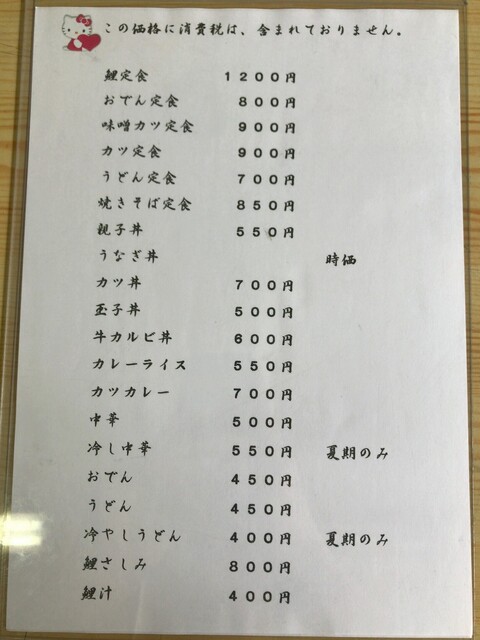 この価格に消費税は、含まれておりません。
鯉定食 1200円
おでん定食 800円
味噌カツ定食 900円
カツ定食 900円
うどん定食 700円
焼きそば定食 850円
親子丼 550円
うなぎ丼 時価
カツ丼 700円
玉子丼 500円
牛カルビ丼 600円
カレーライス 550円
カツカレー 700円
中華 500円
冷し中華 550円 夏期のみ
おでん 450円
うどん 450円
冷やしうどん 400円 夏期のみ
鯉さしみ 800円
鯉汁 400円